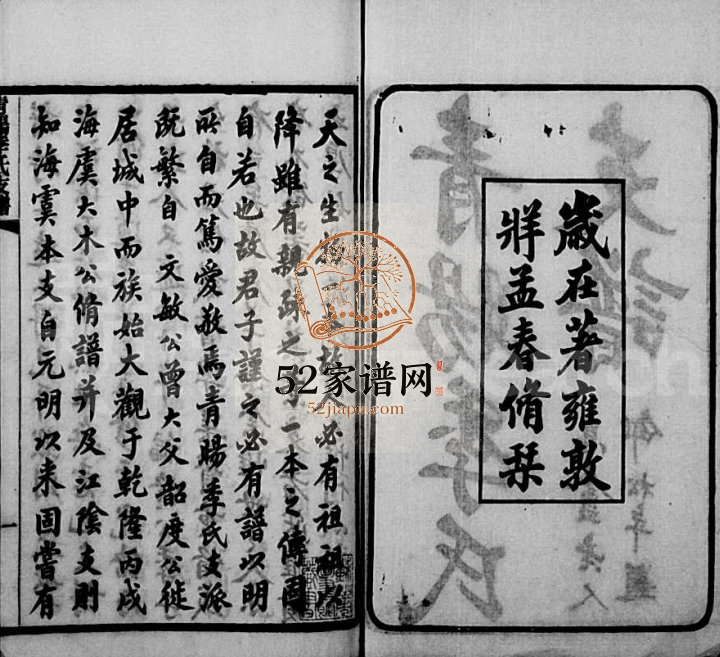 歲在著雍敦
牂孟春脩琹
天之生 必有祖祖以
降雖有親疎之 一本之傳固
自若也故君子謹之必有譜以明
所自而篤愛敬焉青暘季氏支派
旣繁自 文敏公曾大父韶度公徙
居城中而族始大觀于乾隆丙戌
海虞大木公脩譜并及江陰支則
知海虞本支自元明以来固嘗有
一
52家谱网
52jiapu.com